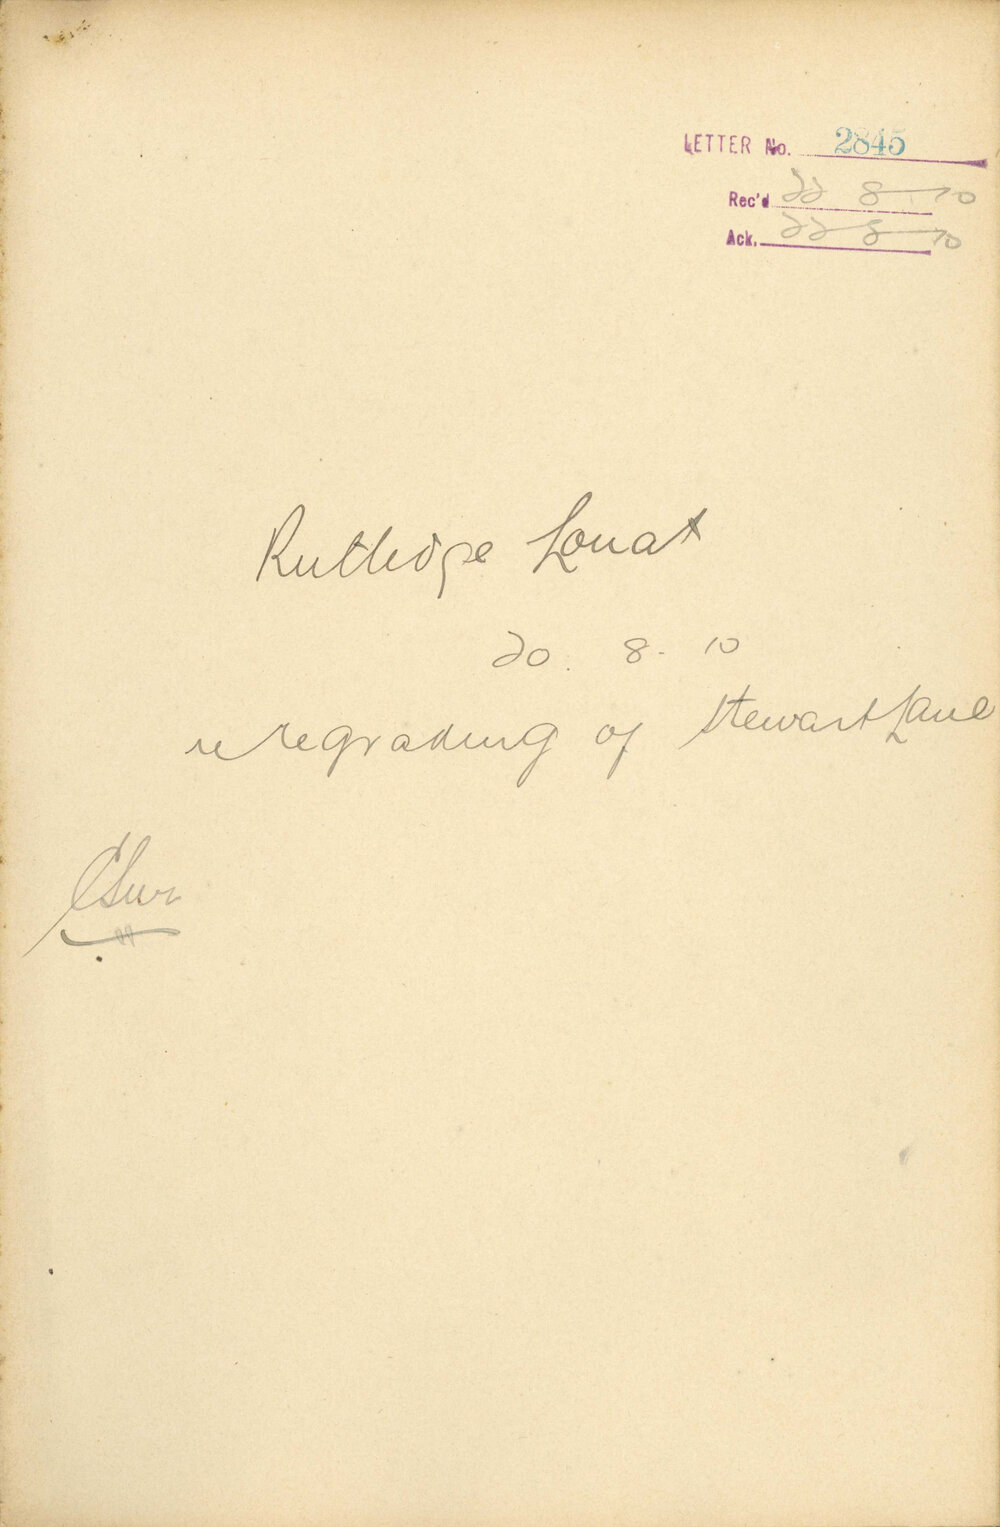 LETTER No. 2845
Rec'd 22 8 10
Ack. 22 8 10
Rutledge Lovat
20. 8. 10
re regrading of Stewart Lane